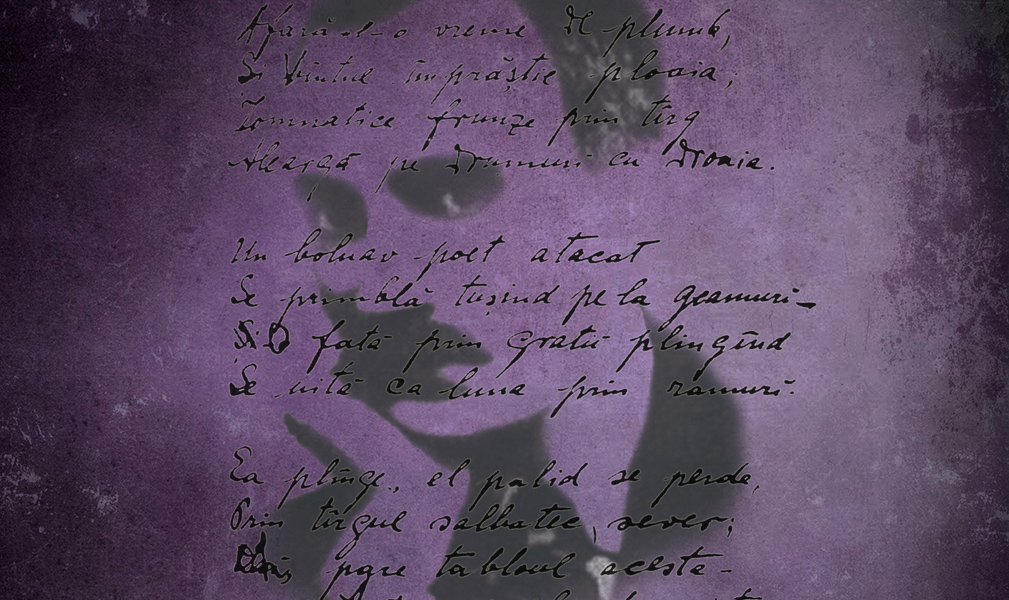 Afară-i-o vreme de plumb,
Și vîntul împrăștie ploaia;
Tomnatice frunze prin tîrg
Aleargă pe drumuri cu droaia.
Un bolnav poet atacat
Se primblă tușind pe la geamuri-
Și O fată prin gratii plîngînd
Se uită ca luna prin ramuri.
Ea plînge, el palid se perde,
Prin tîrgul salbatec, sever;
pare tabloul acesta-